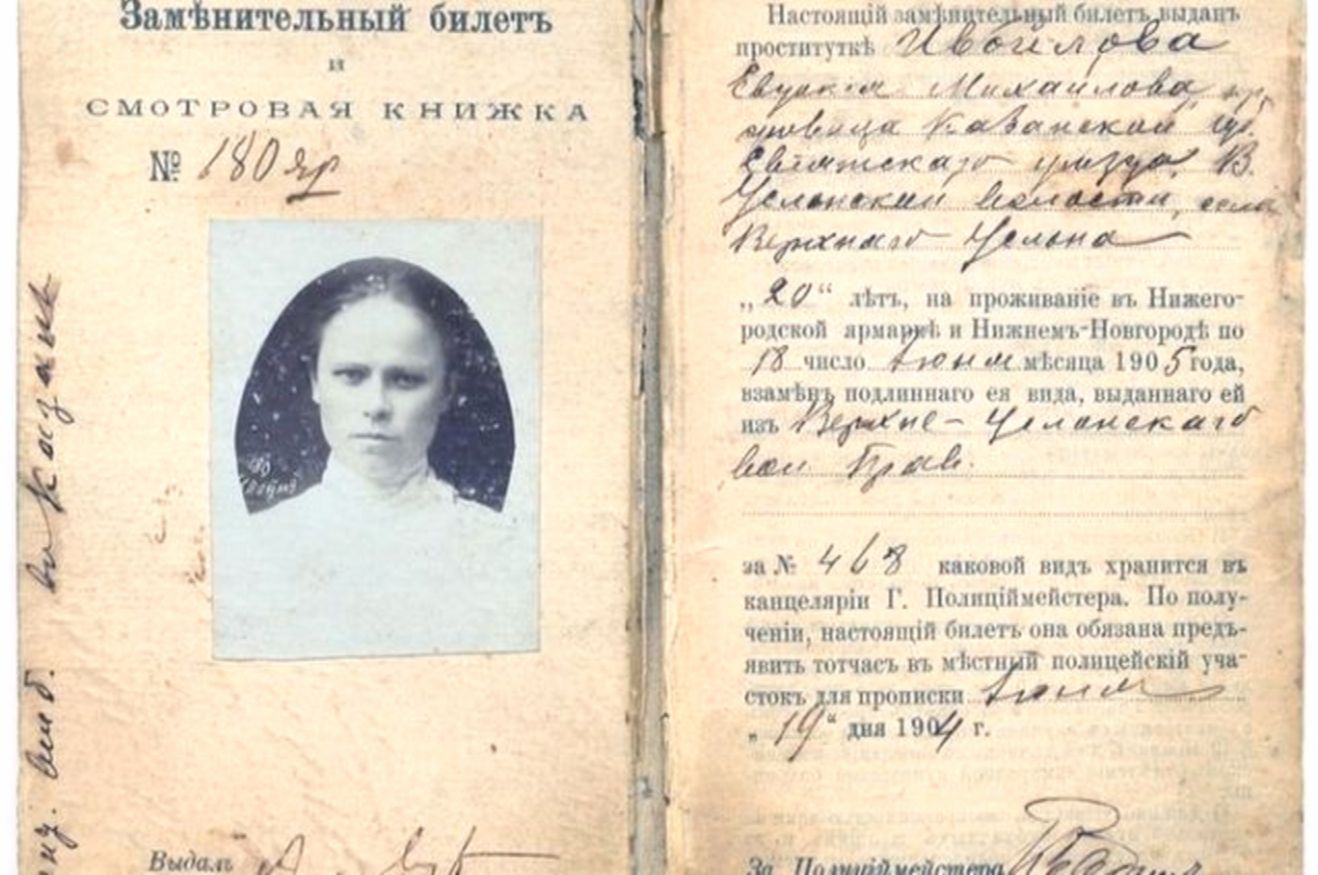 Замѣнительный билетъ
и
СМОТРОВАЯ КНИЖКА
№ 180 яр
Выдалъ
Настоящій замѣнительный билетъ выданъ
проституткѣ Ивойлова
Евдокія Михаилова
Казанской губ.
Свіяжскаго уѣзда, В.
Услонской волости, села
Верхняго Услона
„20“ лѣтъ, на проживаніе въ Нижего-
родской ярмаркѣ и Нижнемъ-Новгородѣ по
18 число Іюня мѣсяца 1905 года,
взамѣнъ подлиннаго ея вида, выданнаго ей
изъ Верхне-Услонскаго
вол Прав.
за № 468 каковой видъ хранится въ
канцеляріи Г. Полиціймейстера. По полу-
ченіи, настоящій билетъ она обязана предъ-
явить тотчасъ въ мѣстный полицейскій уча-
стокъ для прописки Іюня
„19“ дня 1904 г.
За Полиціймейстера
въ Казань